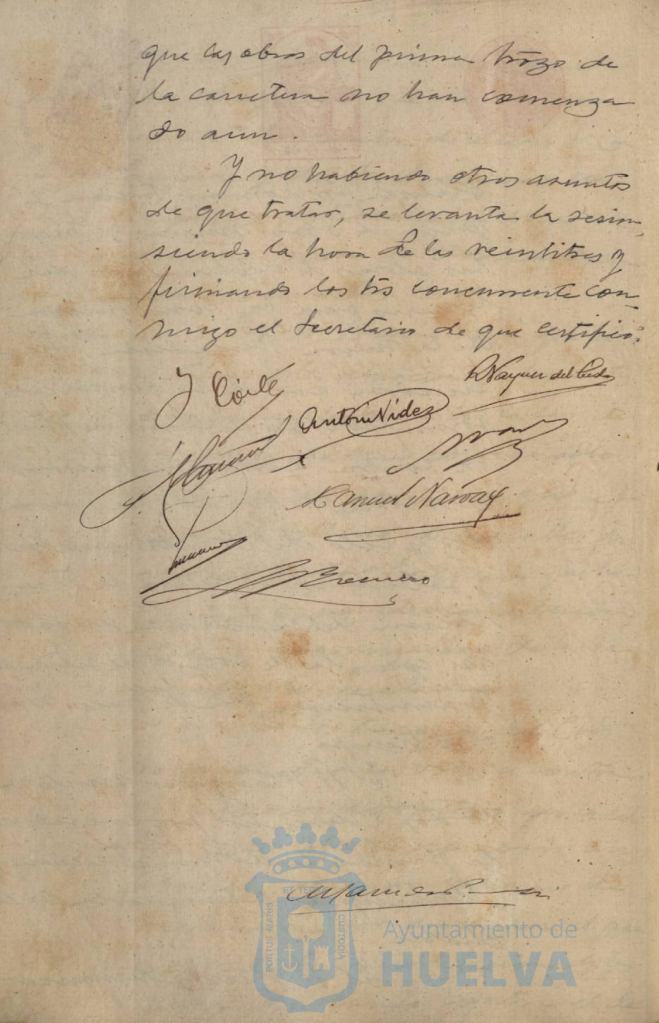 que las obras del primer trozo de
la carretera no han comenza
do aun.
Y no habiendo otros asuntos
de que tratar, se levanta la sesion,
siendo la hora de las veintitres y
firmando los Srs concurrente con-
migo el Secretario de que certifico.
R Vazquez del Cid
J Corte
Antonio Videz
Manuel Narvaez
PORTUS MARIS
ET TERRAE
CUSTODIA
Ayuntamiento de
HUELVA